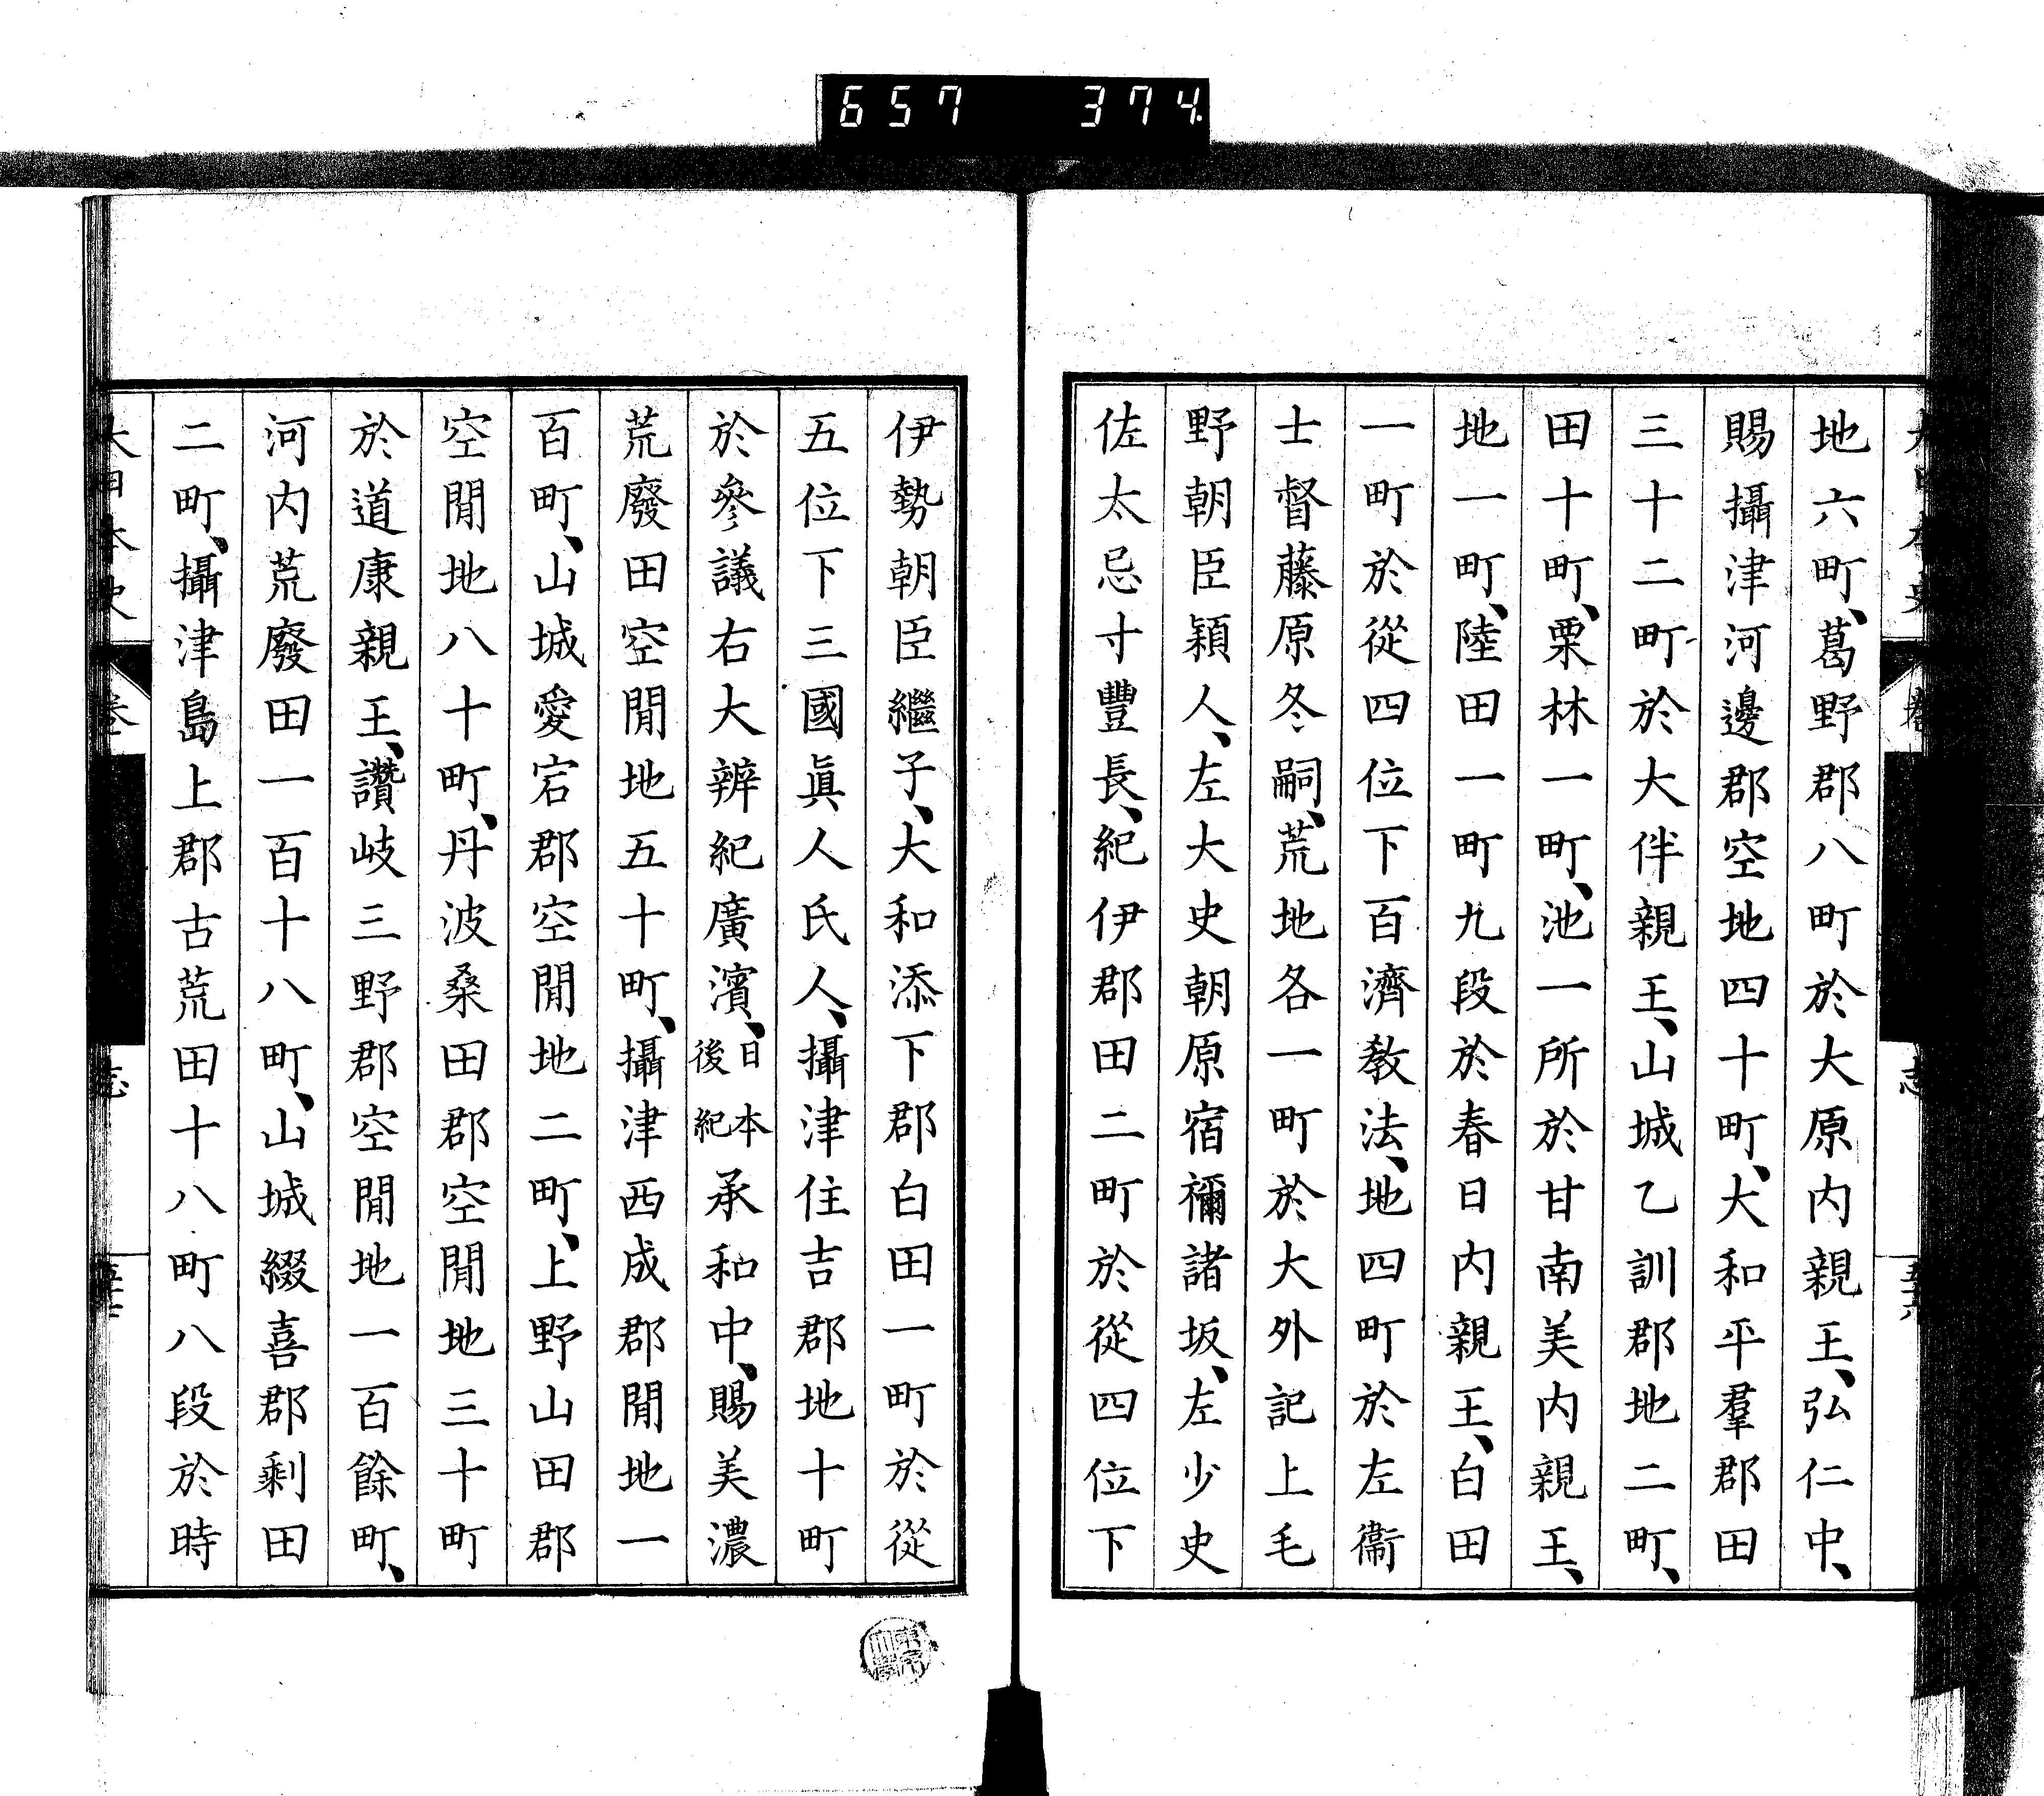 657 374
地六町、葛野郡八町於大原内親王、弘仁中、
賜攝津河邊郡空地四十町、大和平羣郡田
三十二町於大伴親王、山城乙訓郡地二町、
田十町、栗林一町、池一所於甘南美内親王、
地一町、陸田一町九段於春日内親王、白田
一町於從四位下百濟教法、地四町於左衞
士督藤原冬嗣、荒地各一町於大外記上毛
野朝臣穎人、左大史朝原宿禰諸坂、左少史
佐太忌寸豐長、紀伊郡田二町於從四位下
伊勢朝臣繼子、大和添下郡白田一町於從
五位下三國眞人氏人、攝津住吉郡地十町
於參議右大辨紀廣濱、日本後紀承和中、賜美濃
荒廢田空閒地五十町、攝津西成郡閒地一
百町、山城愛宕郡空閒地二町、上野山田郡
空閒地八十町、丹波桑田郡空閒地三十町
於道康親王、讚岐三野郡空閒地一百餘町、
河内荒廢田一百十八町、山城綴喜郡剩田
二町、攝津島上郡古荒田十八町八段於時
大日本史 卷 志